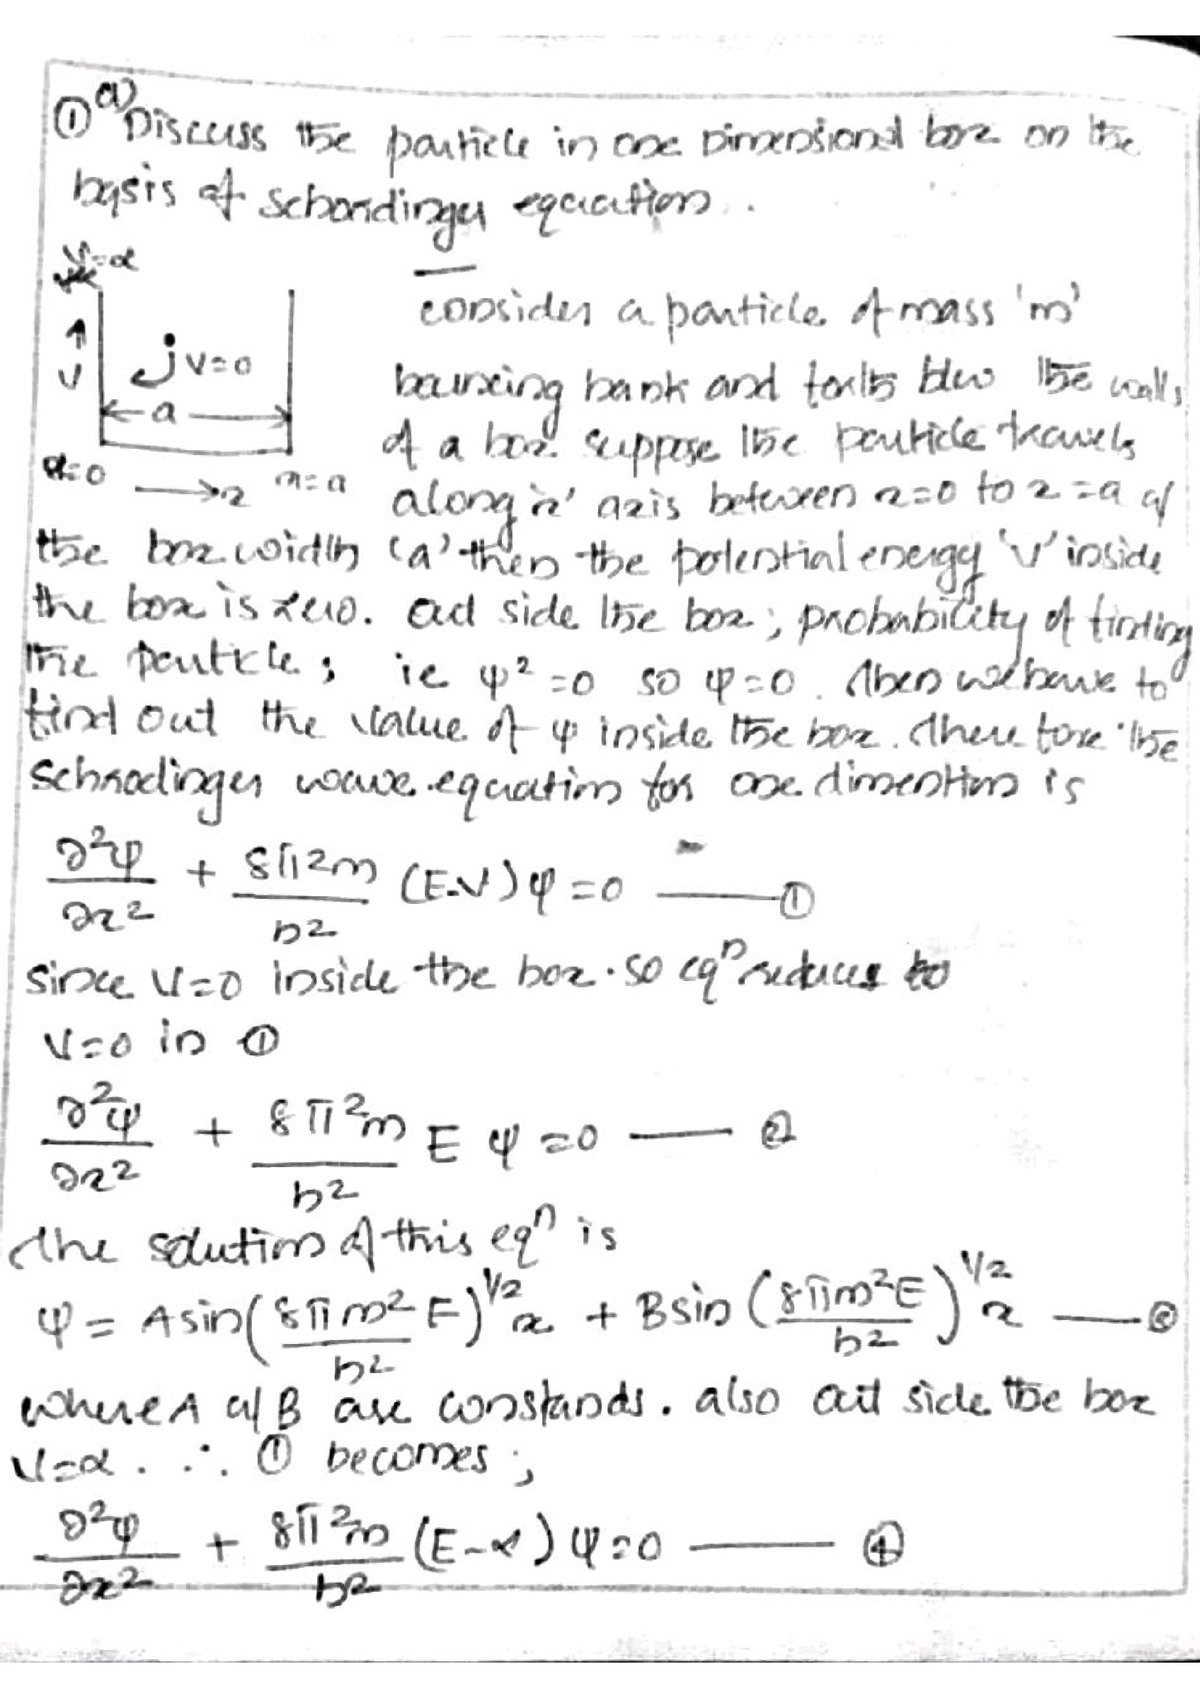 ① a) Discuss the particle in one Dimensional box on the
basis of Schordinger equation.
V=α
V
V=0
a
x=0
x
x=a
consider a particle of mass 'm'
bouncing bank and forth b/w the walls
of a box. suppose the particle travels
along 'x' axis between x=0 to x=a of
the box width 'a' then the potential energy 'V' inside
the box is zero. out side the box; probability of finding
the particle; ie ψ²=0 so ψ=0. then we have to
find out the value of ψ inside the box. there fore the
Schrodinger wave equation for one dimention is
∂²ψ/∂x² + 8π²m/h² (E-V)ψ=0 —— ①
since V=0 inside the box. so eqⁿ reduces to
V=0 in ①
∂²ψ/∂x² + 8π²m/h² E ψ=0 —— ②
the solution of this eqⁿ is
ψ = A sin(8πm²E/h²)^1/2 x + B sin(8πm²E/h²)^1/2 x —— ③
where A & B are constands. also out side the box
V=α. ∴ ① becomes;
∂²ψ/∂x² + 8π²m/h² (E-α)ψ=0 —— ④